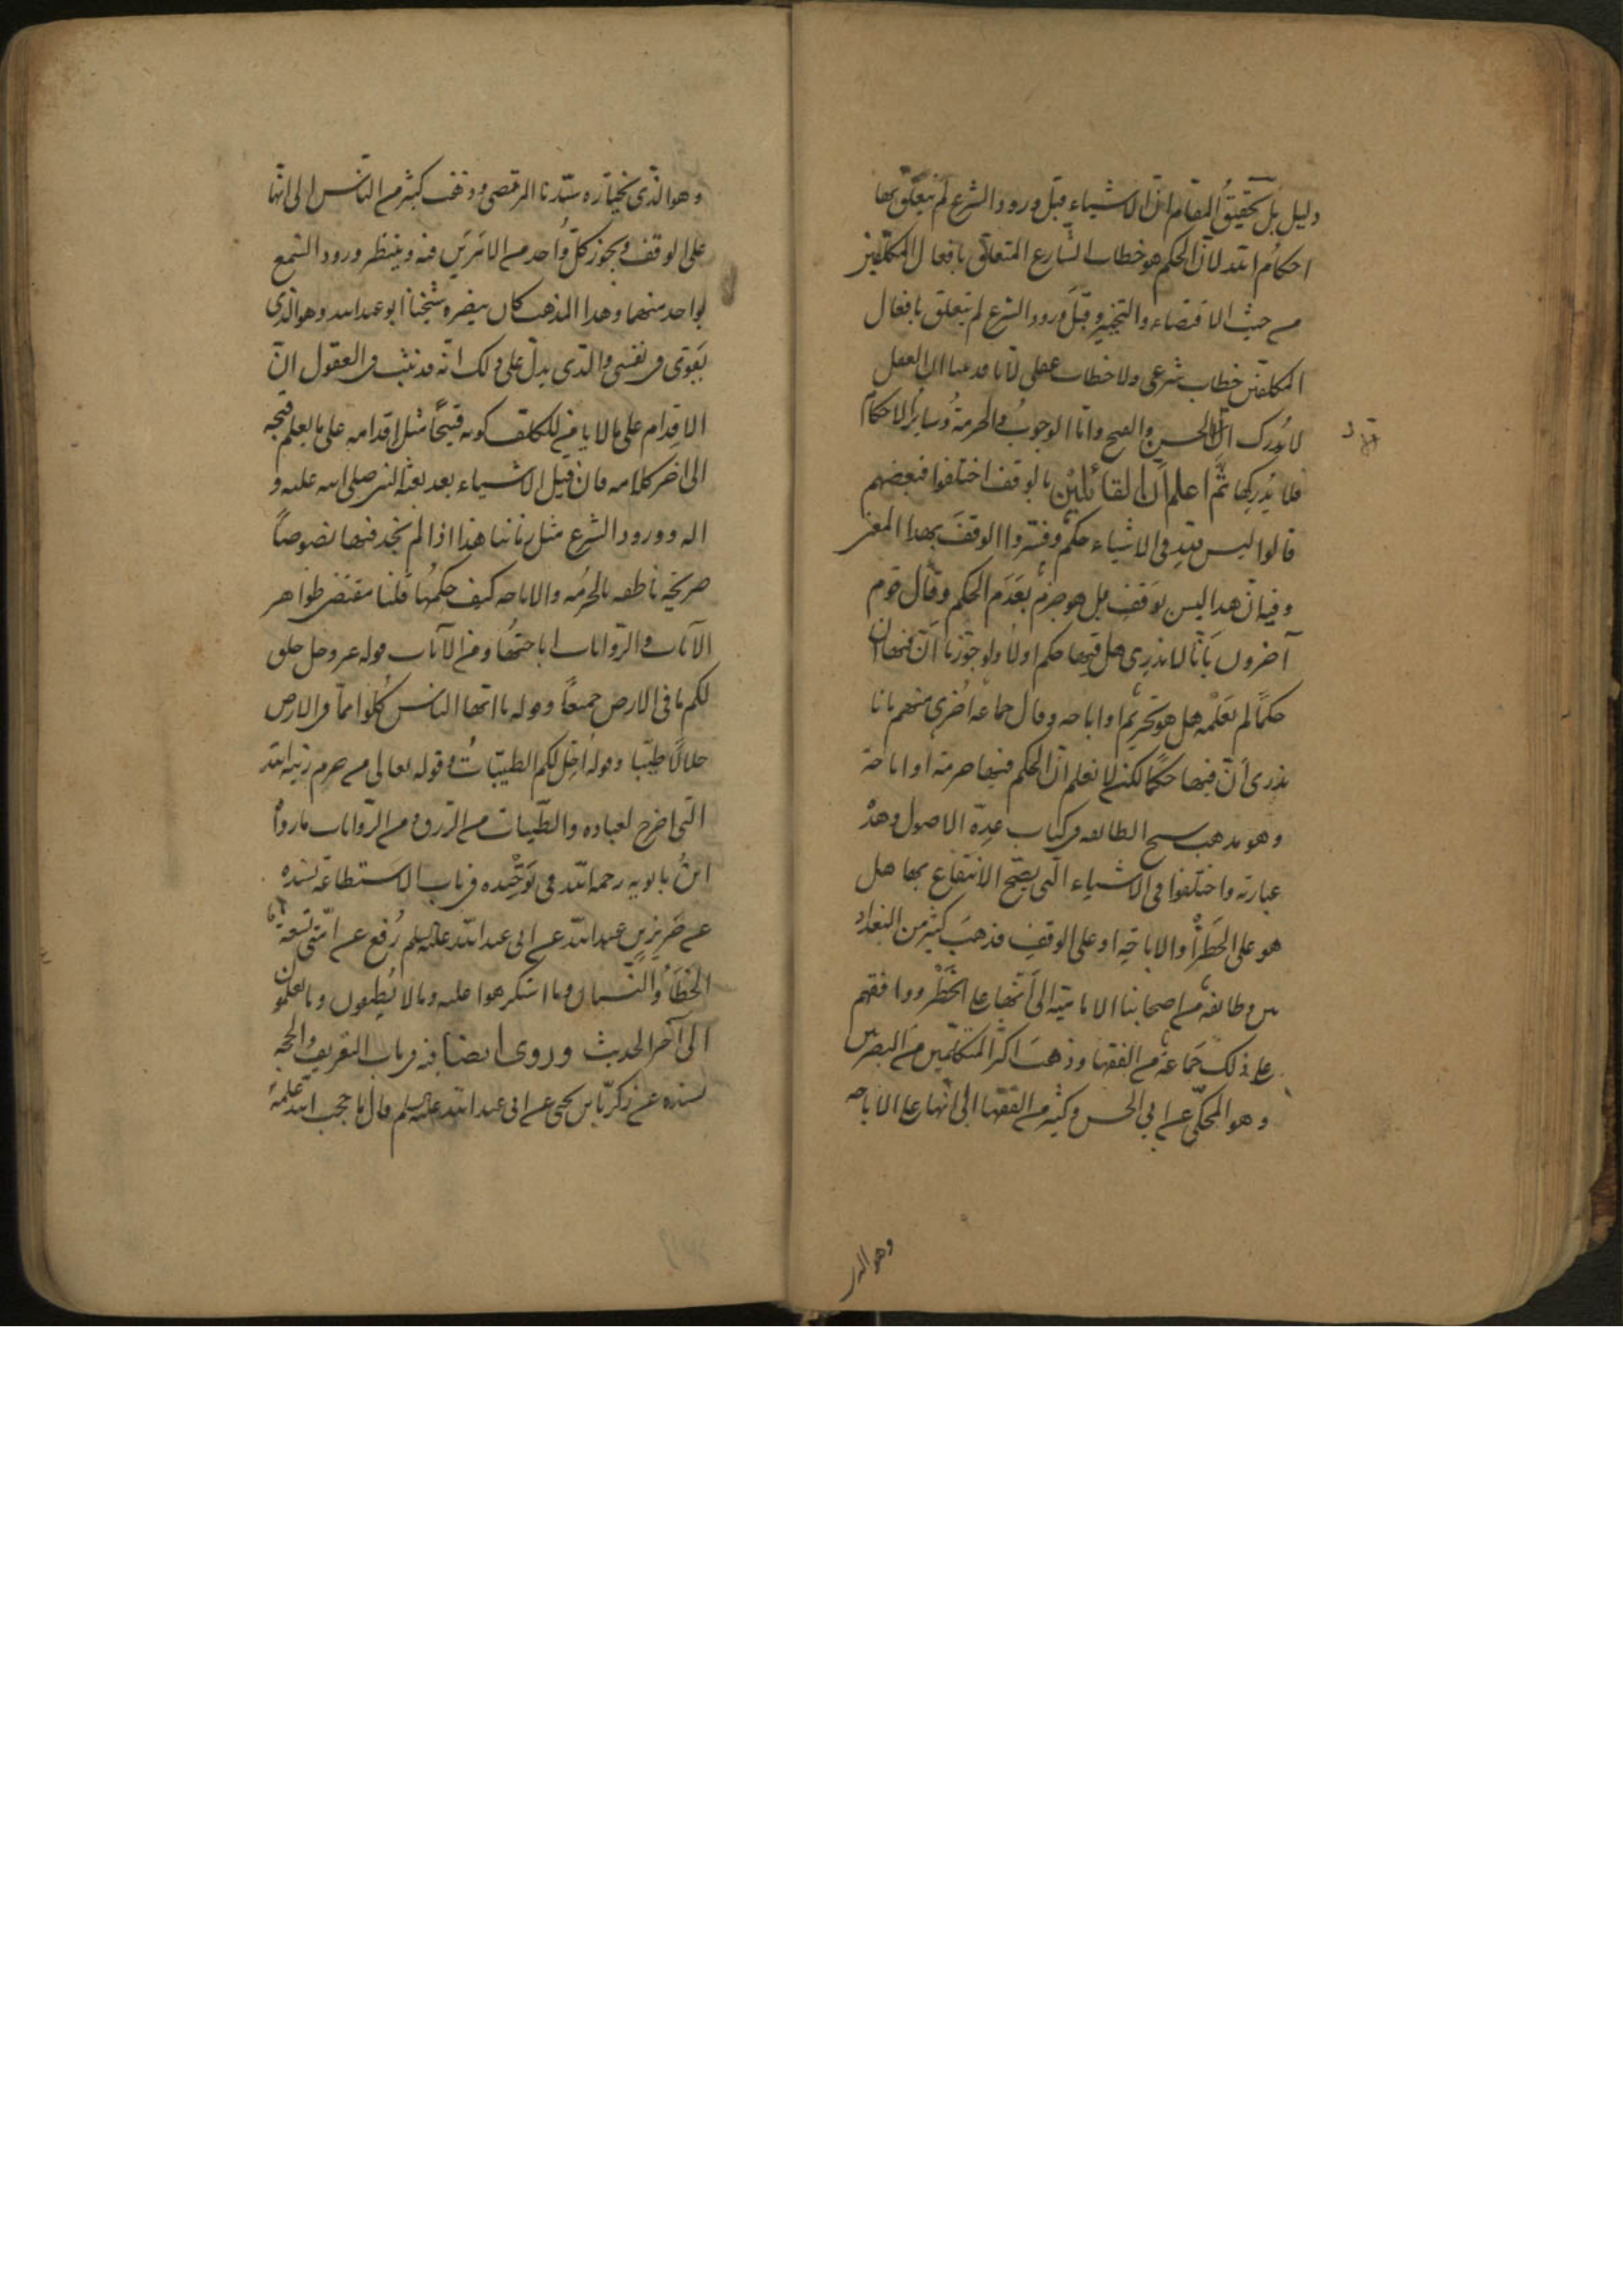 دليل بل تحقيق المقام ان الاشياء قبل ورود الشرع لم يتعلق بها
احكام الله لان الحكم هو خطاب الشارع المتعلق بافعال المكلفين
من حيث الاقتضاء والتخيير وقبل ورود الشرع لم يتعلق بافعال
المكلفين خطاب شرعي ولا خطاب عقلي لانا قد بينا ان العقل
لا يدرك الا الحسن والقبح واما الوجوب والحرمة وسائر الاحكام
فلا يدركها ثم اعلم ان القائلين بالوقف اختلفوا فبعضهم
قالوا ليس لله في الاشياء حكم وفسروا الوقف بهذا المعنى
وفيه ان هذا ليس بوقف بل هو جزم بعدم الحكم وقال قوم
آخرون بانا لا ندري هل فيها حكم اولا ولو جوزنا ان فيها
حكما لم نعلمه هل هو تحريم او اباحه وقال جماعه اخرى منهم بانا
ندرى أن فيها حكما لكن لا نعلم ان الحكم فيها حرمة او اباحة
وهو مذهب شيخ الطائفه في كتاب عدة الاصول وهذه
عبارته واختلفوا في الاشياء التي يصح الانتفاع بها هل
هو على الحظر أو الاباحة او على الوقف فذهب كثير من البغداد
يين وطائفة من اصحابنا الامامية الى أنها على الحظر ووافقهم
على ذلك جماعة من الفقها وذهب اكثر المتكلمين من البصريين
وهو المحكي عن ابي الحسن وكثير من الفقها الى انها على الاباحه
وهو الذى
وهو الذي يختاره سيدنا المرتضى وذهب كثير من الناس الى انها
على الوقف ويجوز كل واحد من الامرين فيه وينتظر ورود السمع
بواحد منهما وهذا المذهب كان ينصره شيخنا ابو عبد الله وهو الذى
يقوى في نفسي والذي يدل على ذلك انه قد ثبت في العقول ان
الاقدام على ما لا يامن المكلف كونه قبيحا مثل اقدامه على ما يعلم قبحه
الى آخر كلامه فان قيل الاشياء بعد بعثة النبي صلى الله عليه و
اله وورود الشرع مثل زماننا هذا اذا لم نجد فيها نصوصاً
صريحة ناطقه بالحرمه والاباحه كيف حكمها قلنا مقتضى ظواهر
الآيات والروايات اباحتها ومن الآيات قوله عز وجل خلق
لكم ما في الارض جميعاً وقوله يا ايها الناس كلوا مما في الارض
حلالا طيبا وقوله احل لكم الطيبات وقوله تعالى من حرم زينة الله
التي اخرج لعباده والطيبات من الرزق ومن الروايات ما رواه
ابن بابويه رحمه الله في توحيده في باب الاستطاعة بسنده
عن حريز بن عبد الله عن ابي عبد الله عليه السلم رفع عن امتى تسعة
الخطأ والنسيان وما استكرهوا عليه وما لا يطيقون وما لا يعلمون
الى آخر الحديث وروى ايضا فيه في باب التعريف والحجه
بسنده عن زكريا بن يحيى عن ابي عبد الله عليه السلم قال ما حجب الله علمه